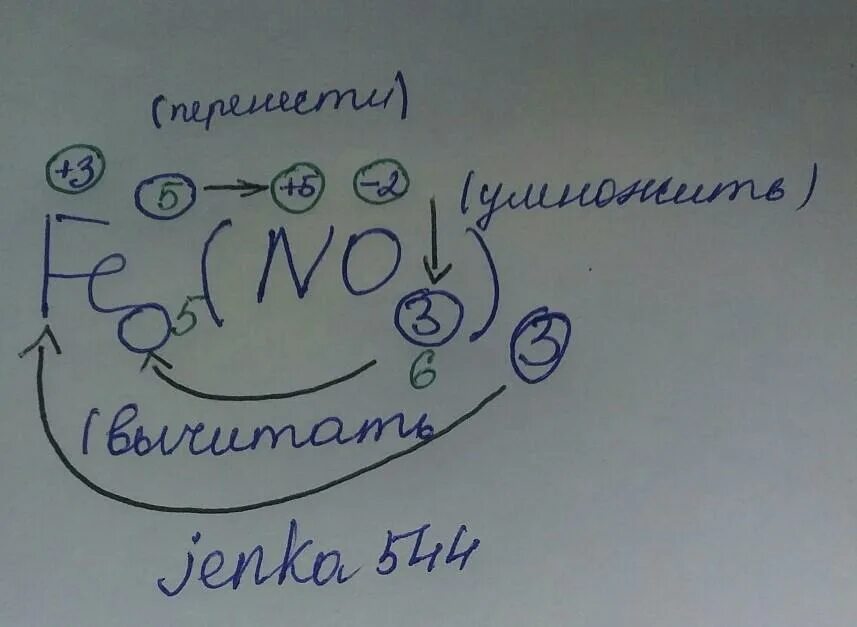 (перенести)
+3 5 → +5 -2 ↓ (умножить)
Fe 5 (NO 3) 3
6
(вычитать
jenka 544